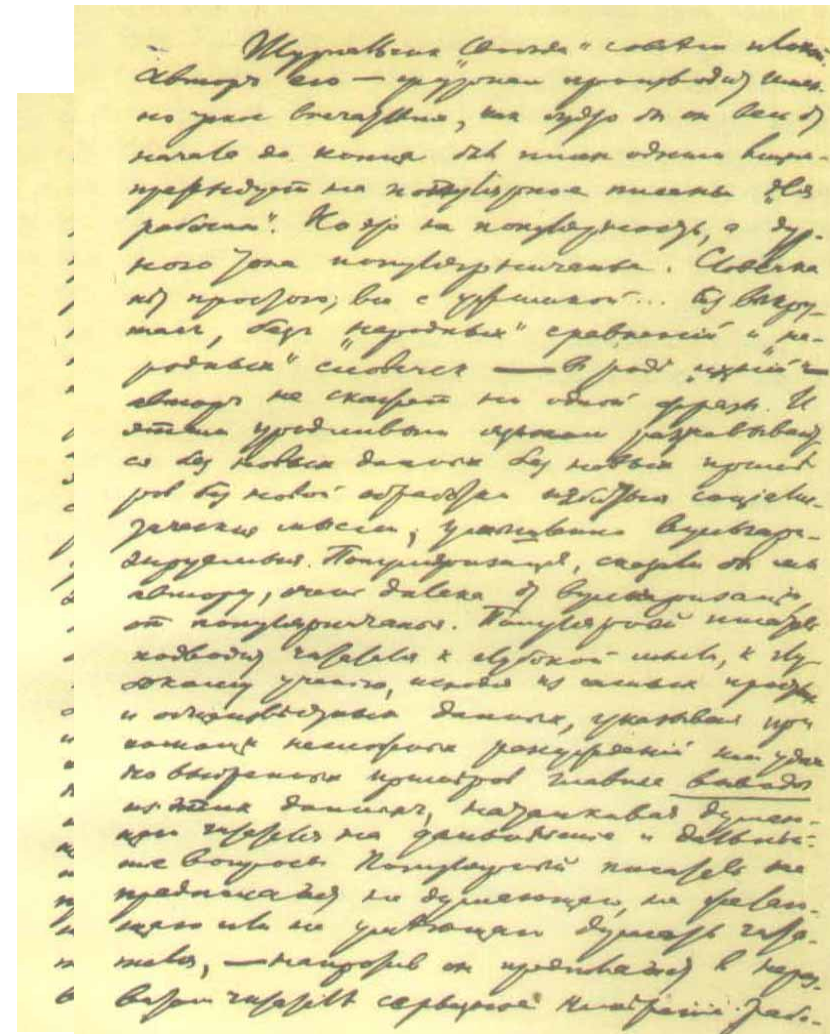 Журнальчик „Свобода“ совсѣм плохой.
Авторъ его — журнал производит имен-
но такое впечатлѣние, как будто бы он весь от
начала до конца был писан одним лицом —
претендует на популярное писание „для
рабочих“. Но это не популярность, а дур-
ного тона популярничанье. Словечка
нѣт простого, все с ужимкой... Без выкру-
тас, безъ „народных“ сравнений и „на-
родных“ словечек — в родѣ „ихний“ —
авторъ не скажет ни одной фразы. И
этим уродливым языком разжевывают-
ся без новых данных без новых примѣ-
ров без новой обработки избитыя социалис-
тическия мысли, умышленно вульгари-
зируемыя. Популяризация, сказали бы мы
автору, очень далека от вульгаризации,
от популярничанья. Популярный писатель
подводит читателя к глубокой мысли, к глу-
бокому учению, исходя из самых простых
и общеизвѣстных данных, указывая при
помощи несложных разсуждений или удач-
но выбранных примѣров главные выводы
из этих данных, наталкивая думаю-
щаго читателя на дальнѣйшие и дальнѣй-
шие вопросы. Популярный писатель не
предполагает не думающаго, не желаю-
щаго или не умѣющаго думать чита-
теля, — напротив он предполагает в нераз-
витом читателѣ серьезное намѣрение рабо-